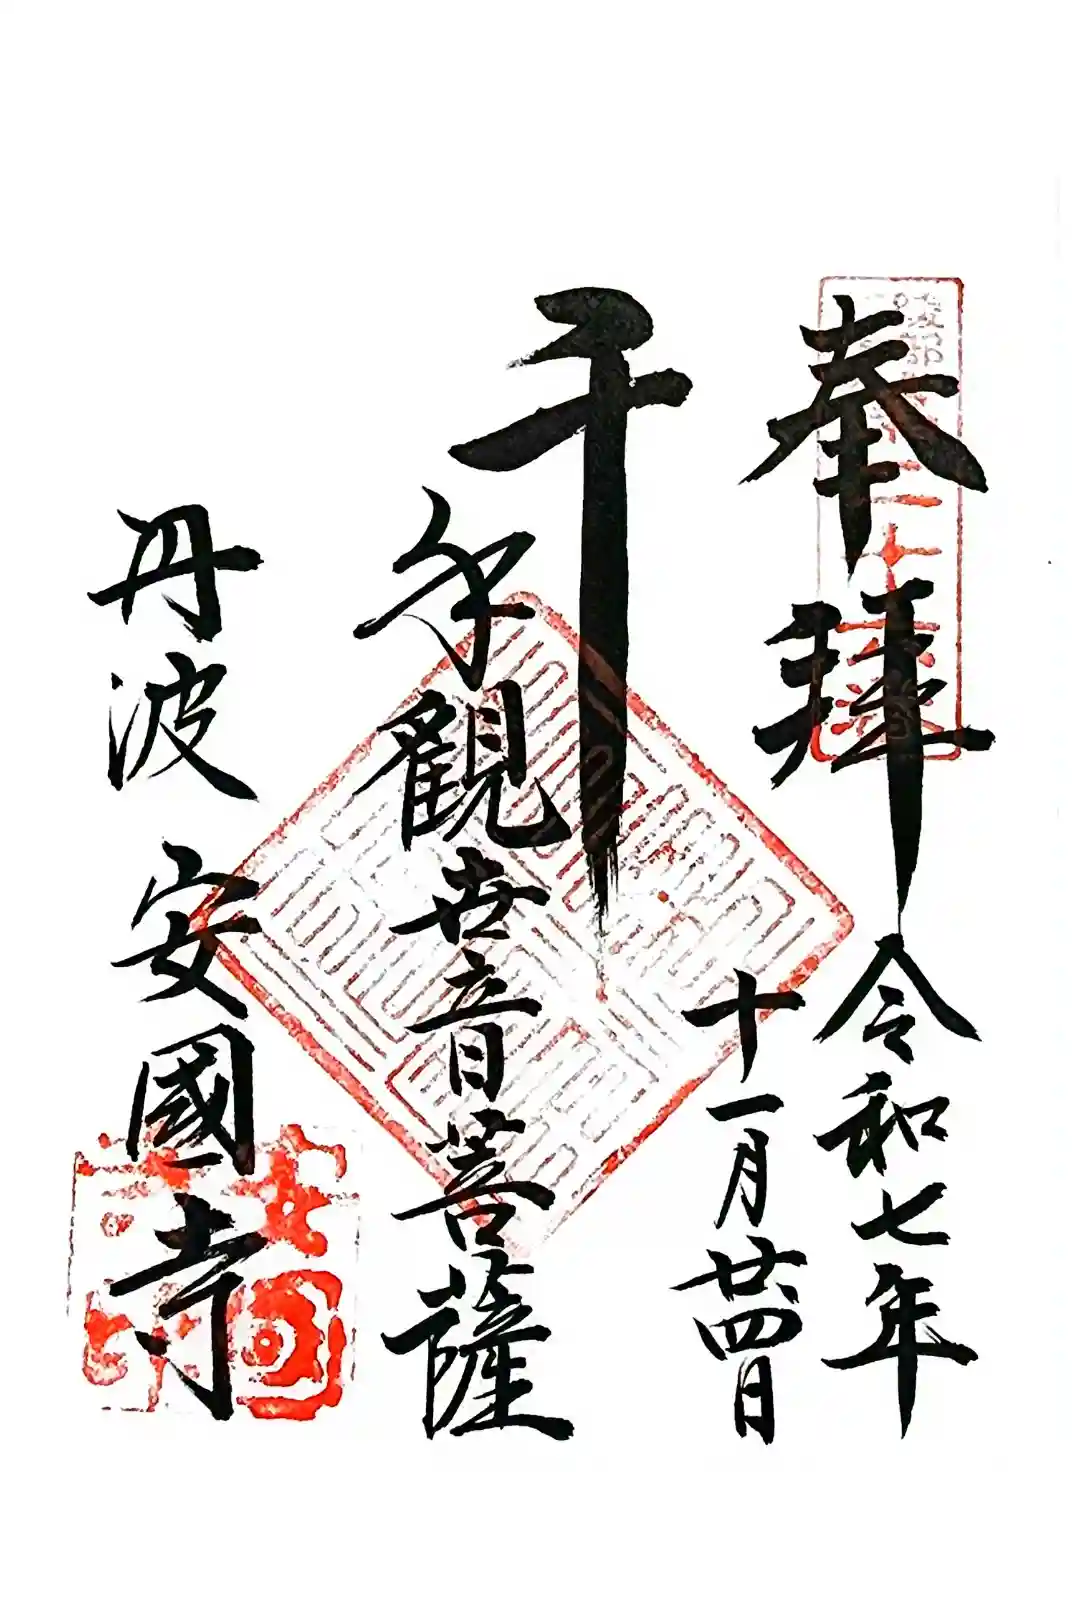 奉拜
令和七年
十一月廿四日
千手觀世音菩薩
丹波 安國寺